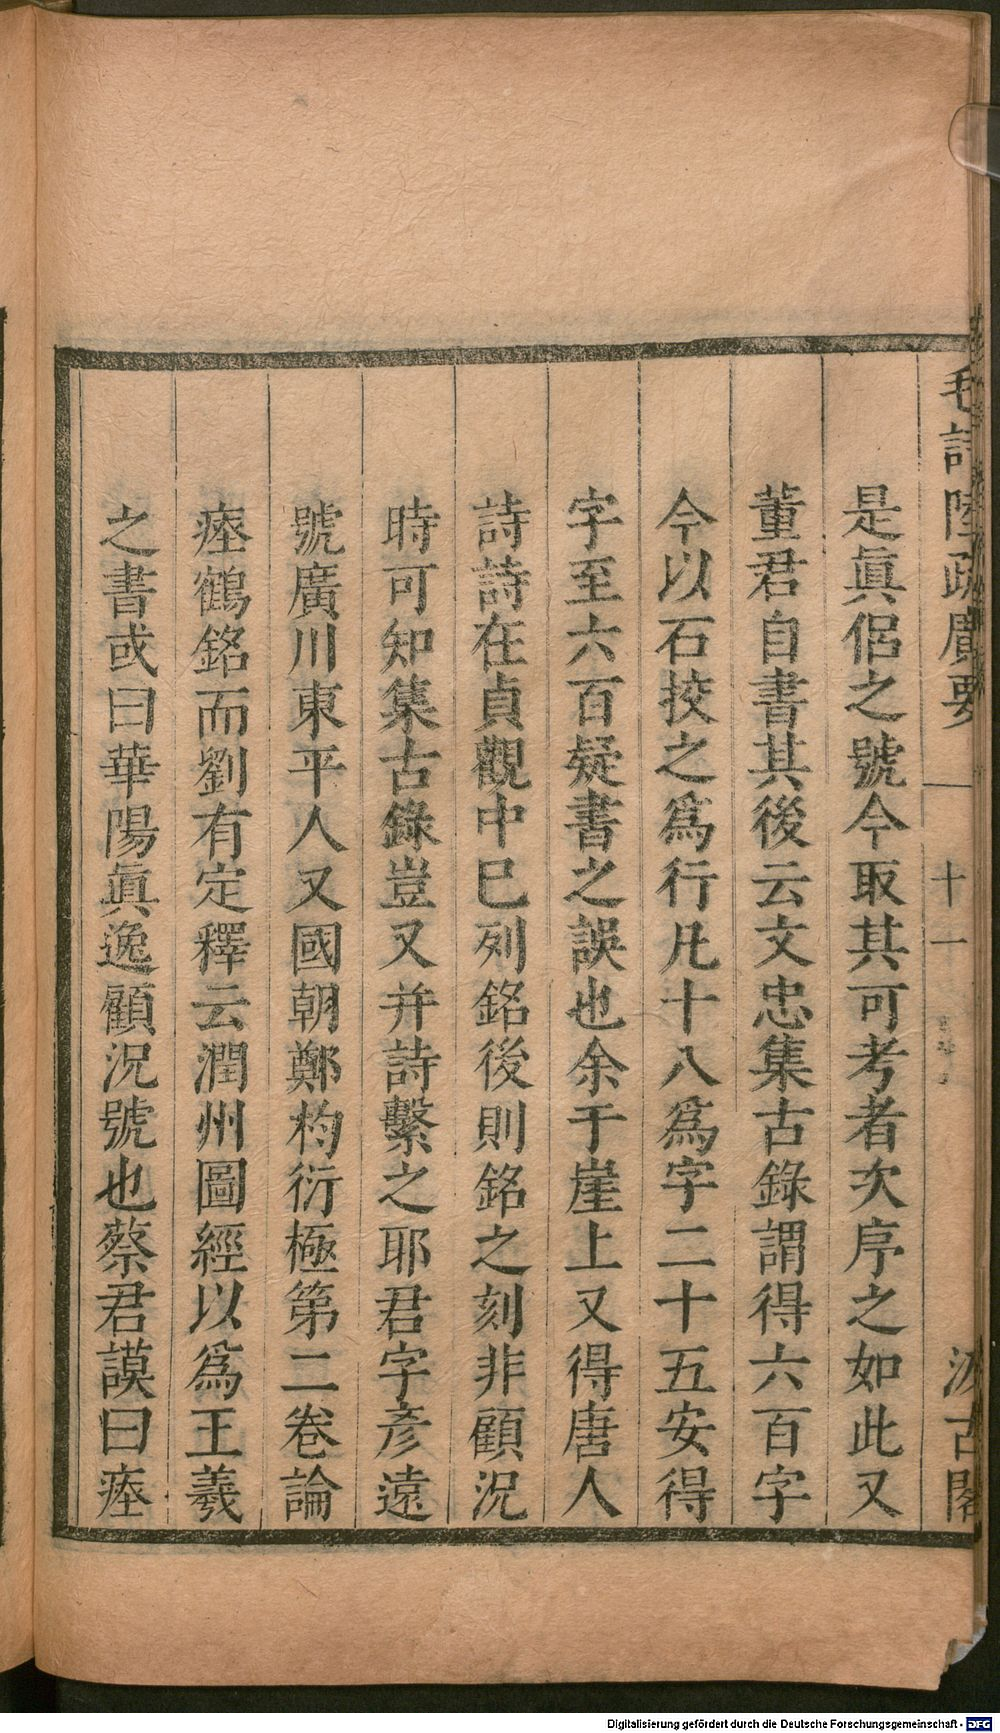 毛詩陸疏廣要 十一 汲古閣
是眞侶之號今取其可考者次序之如此又
董君自書其後云文忠集古錄謂得六百字
今以石挍之爲行凡十八爲字二十五安得
字至六百疑書之誤也余于崖上又得唐人
詩詩在貞觀中已列銘後則銘之刻非顧況
時可知集古錄豈又并詩繫之耶君字彥遠
號廣川東平人又國朝鄭杓衍極第二卷論
瘞鶴銘而劉有定釋云潤州圖經以爲王羲
之書或曰華陽眞逸顧況號也蔡君謨曰瘞
Digitalisierung gefördert durch die Deutsche Forschungsgemeinschaft - DFG